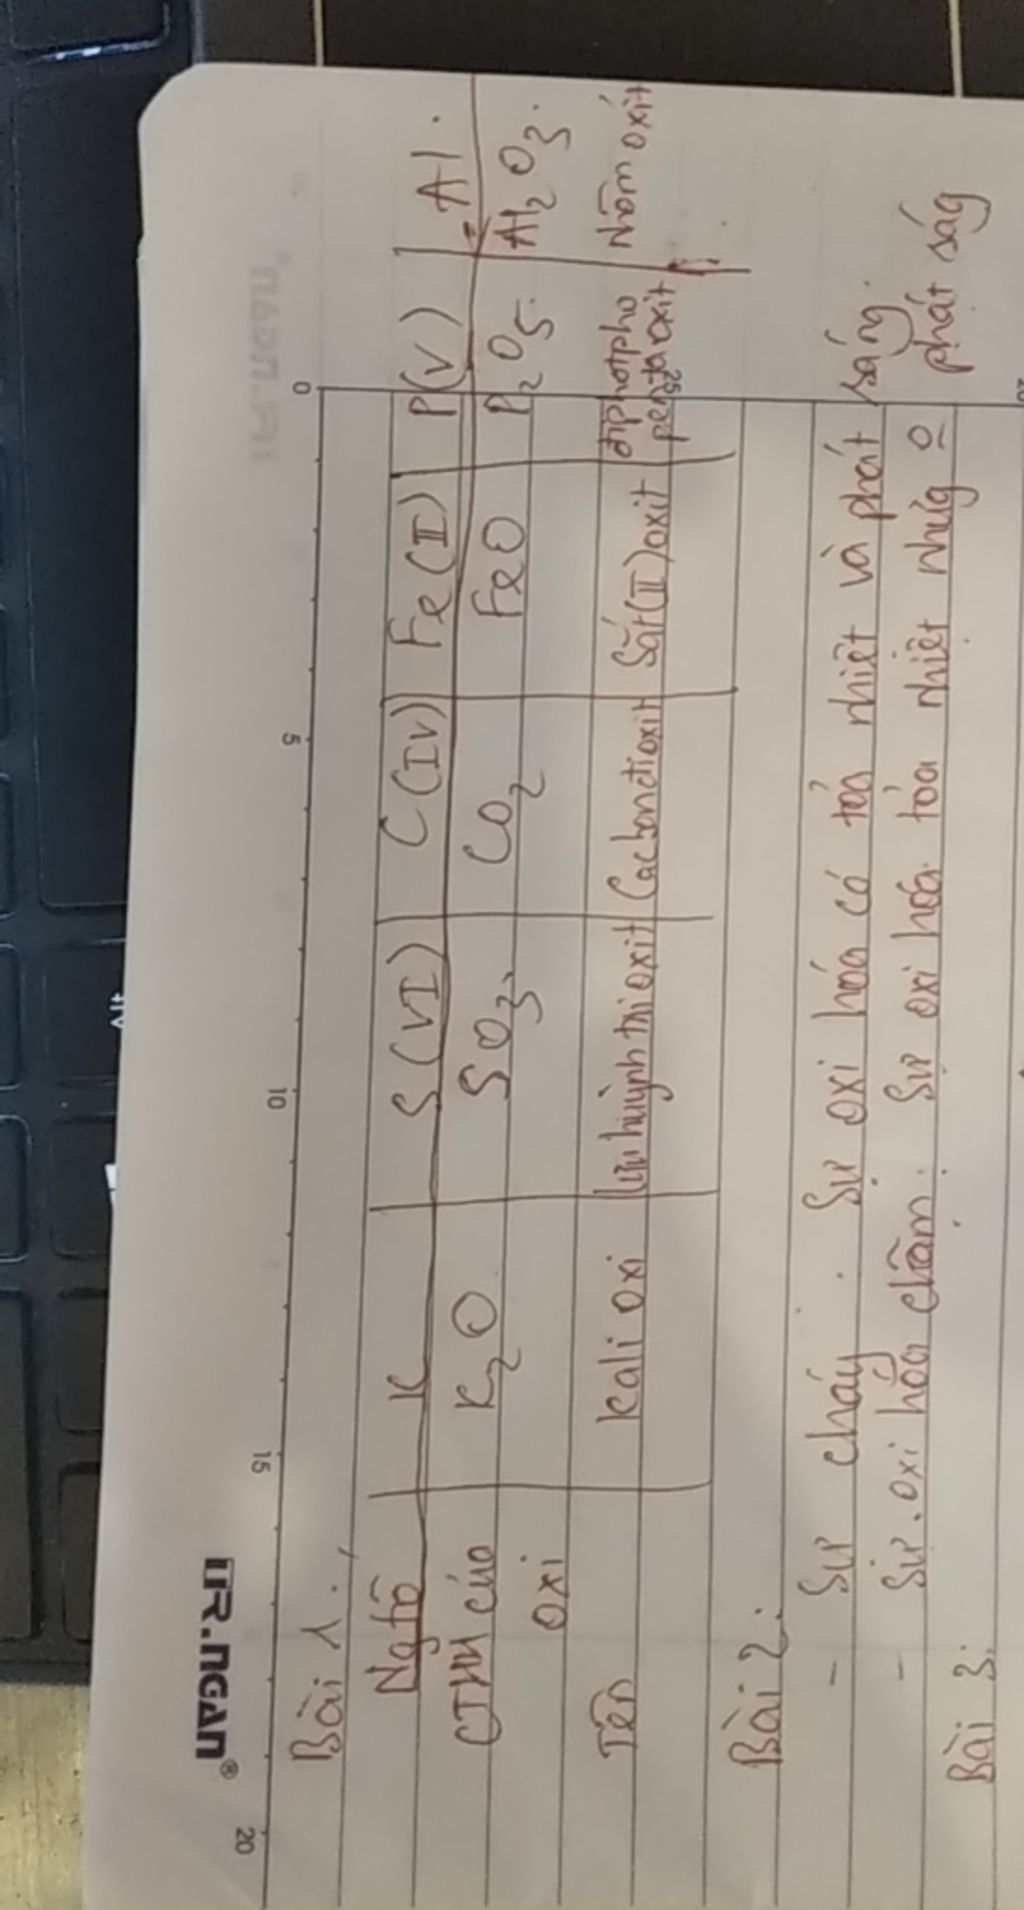 TR.NGAN®
20 15 10 5 0
Bài 1.
Ngtố K S(VI) C(IV) Fe(II) P(V) Al.
CTHH của oxi K₂O SO₃ CO₂ FeO P₂O₅. Al₂O₃.
Tên kali oxi lưu huỳnh tri oxit Cacbonđioxit Sắt(II)oxit điphotpho pentaoxit nhôm oxit
25
Bài 2.
- Sự cháy. Sự oxi hóa có tỏa nhiệt và phát sáng.
- Sự oxi hóa chậm. Sự oxi hóa tỏa nhiệt nhưg o phát ság
Bài 3.